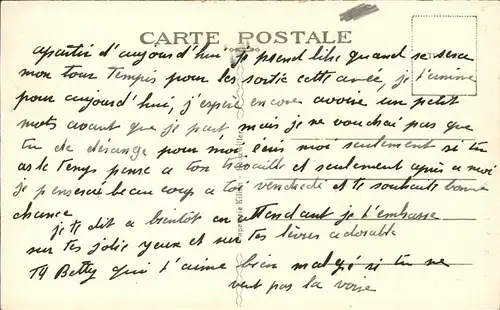 CARTE POSTALE
apartir d'aujourd'hui je prend libe quand se sera
mon tour tempis pour les sortie cette anée, je t'aime
pour aujourd'hui, j'espére encore avoire un petit
mots avant que je part mais je ne voudrai pas que
tu de désange pour moi écris moi seulement si tu
as le temps pense a ton travaille et seulement après a moi
je penseré beaucoup a toi vendredi et te souhaite bonne
chance
je te dit a bientot en attendant je t'embrasse
sur tes jolie yeux et sur tes lèvres adorable
Ta Betty qui t'aime bien malgré si tu ne
veut pas la voire